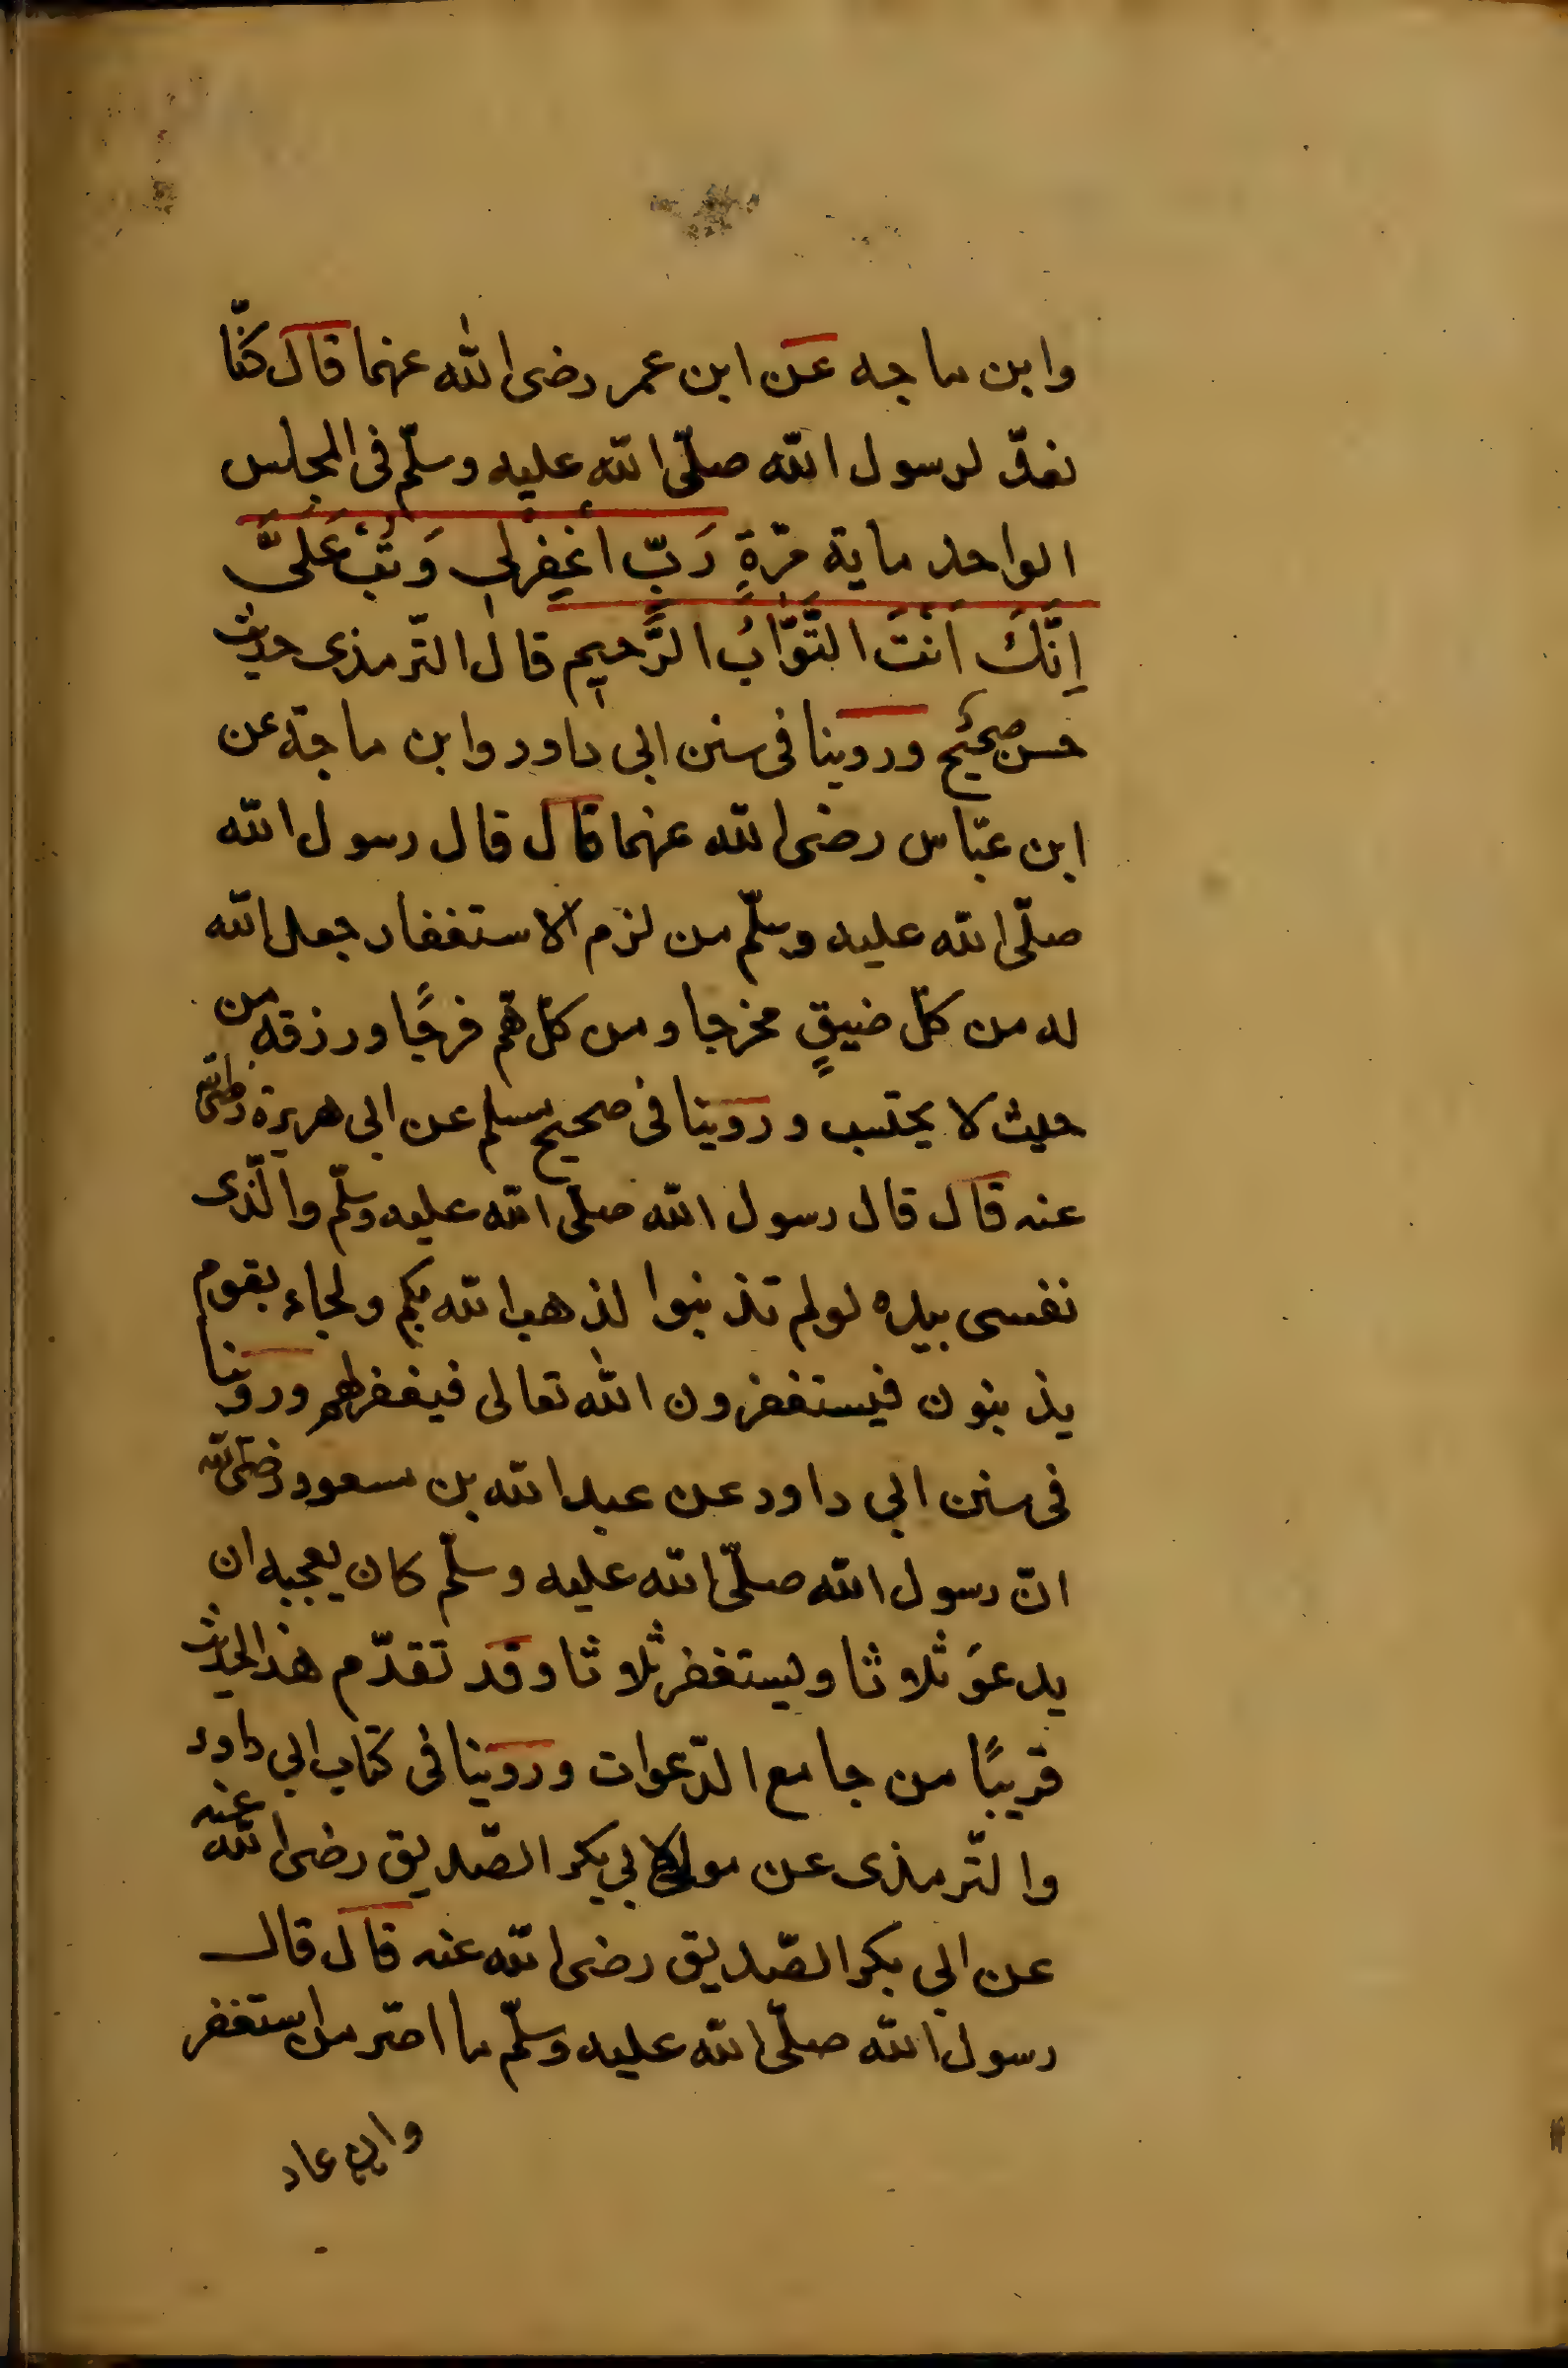 وابن ماجه عن ابن عمر رضى الله عنهما قال كنّا
نعدّ لرسول الله صلّى الله عليه وسلّم فى المجلس
الواحد ماية مرّةٍ رَبِّ اغْفِرْلِى وَتُبْ عَلَىَّ
اِنَّكَ اَنْتَ التَّوَّابُ الرَّحِيم قال التّرمذى حديث
حسن صحيح وروينا فى سنن ابى داود وابن ماجة عن
ابن عبّاس رضى الله عنهما قال قال رسول الله
صلّى الله عليه وسلّم من لزم الاستغفار جعل الله
له من كلّ ضيقٍ مخرجا ومن كلّ همّ فرجًا ورزقه من
حيث لا يحتسب وروينا فى صحيح مسلم عن ابى هريرة رضى الله
عنه قال قال رسول الله صلّى الله عليه وسلّم والّذى
نفسى بيده لو لم تذنبوا لذهب الله بكم ولجاء بقوم
يذنبون فيستغفرون الله تعالى فيغفر لهم وروينا
فى سنن ابى داود عن عبد الله بن مسعود رضى الله
انّ رسول الله صلّى الله عليه وسلّم كان يعجبه ان
يدعوَ ثلاثا ويستغفر ثلاثا وقد تقدّم هذا الحديث
قريبًا من جامع الدّعوات وروينا فى كتاب ابى داود
والتّرمذى عن مولى لابى بكر الصّديق رضى الله عنه
عن ابى بكر الصّديق رضى الله عنه قال قال
رسول الله صلّى الله عليه وسلّم ما اصّر من استغفر
وان عاد